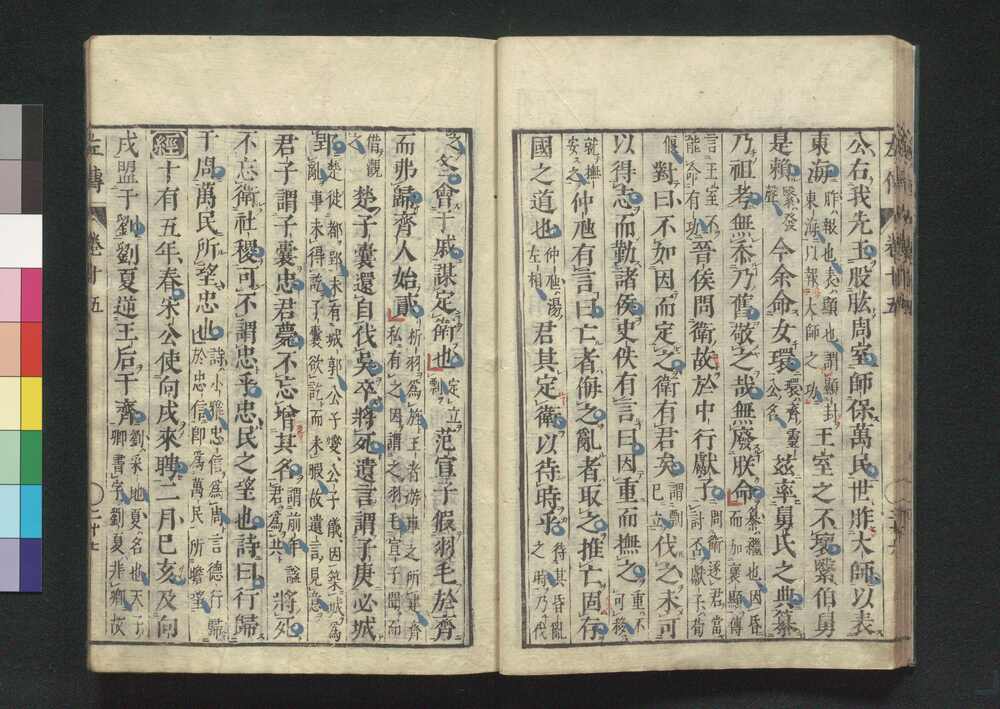 公右我先王股肱周室師保萬民世胙大師以表
東海胙報也表顯也謂顯封東海以報大師之功王室之不壞繄伯舅
是賴繄發聲今余命女環環齊靈公名茲率舅氏之典纂
乃祖考無忝乃舊敬之哉無廢朕命纂繼也因昏而加褒顯傳
言王室不能命有功晉侯問衛故於中行獻子問衛逐君當討否獻子荀
偃對曰不如因而定之衛有君矣謂剽已立伐之未可
以得志而勤諸侯史佚有言曰因重而撫之重不可移
就撫安之仲虺有言曰亡者侮之亂者取之推亡固存
國之道也仲虺湯左相君其定衛以待時乎待其昏亂之時乃伐
之冬會于戚謀定衛也定立剽范宣子假羽毛於齊
而弗歸齊人始貳析羽爲旌王者游車之所建齊私有之因謂之羽毛宣子聞而
借觀之楚子囊還自伐吳卒將死遺言謂子庚必城
郢楚徙都郢未有城郭公子燮公子儀因築城爲亂事未得訖子囊欲訖而未暇故遺言見意
君子謂子囊忠君薨不忘增其名謂前年謚君爲共將死
不忘衛社稷可不謂忠乎忠民之望也詩曰行歸
于周萬民所望忠也詩小雅忠信爲周言德行歸於忠信卽爲萬民所瞻望
經十有五年春宋公使向戌來聘二月己亥及向
戌盟于劉劉夏逆王后于齊劉采地夏名也天子卿書字劉夏非卿故
左傳 卷十五